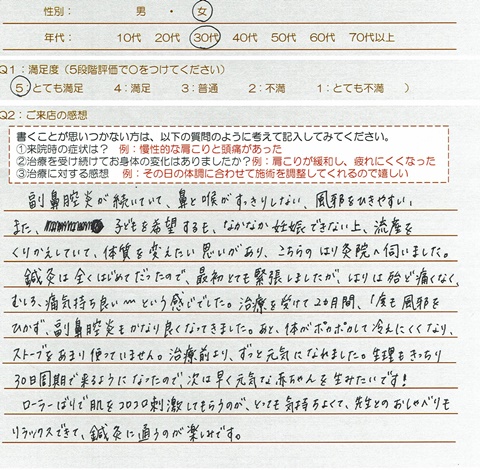 性別： 男 ・ 女
年代： 10代 20代 30代 40代 50代 60代 70代以上
Q1：満足度（5段階評価で〇をつけてください）
5：とても満足 4：満足 3：普通 2：不満 1：とても不満 ）
Q2：ご来店の感想
書くことが思いつかない方は、以下の質問のように考えて記入してみてください。
①来院時の症状は？ 例：慢性的な肩こりと頭痛があった
②治療を受け続けてお身体の変化はありましたか？例：肩こりが緩和し、疲れにくくなった
③治療に対する感想 例：その日の体調に合わせて施術を調整してくれるので嬉しい
副鼻腔炎が続いていて、鼻と喉がすっきりしない、風邪をひきやすい
また、子どもを希望するも、なかなか妊娠できない上、流産を
くりかえしていて、体質を変えたい思いがあり、こちらのはり灸院へ伺いました。
鍼灸は全くはじめてだったので、最初とても緊張しましたが、はりは殆ど痛くなく、
むしろ、痛気持ち良い〜という感じでした。治療を受けて2ヵ月間、1度も風邪を
ひかず、副鼻腔炎もかなり良くなってきました。あと、体がポカポカして冷えにくくなり、
ストーブをあまり使っていません。治療前より、ずっと元気になれました。生理もきっちり
30日周期で来るようになったので、次は早く元気な赤ちゃんを生みたいです!
ローラーばりで肌をコロコロ刺激してもらうのが、とっても気持ちよくて、先生とのおしゃべりも
リラックスできて、鍼灸に通うのが楽しみです。